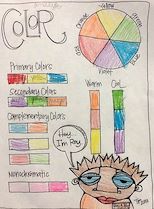 COLOR
Yellow
Orange
Green
Red
Blue
Violet
Primary Colors
Warm
Cool
Secondary Colors
Complementary Colors
Hey...
I'm Ray.
Monochromatic